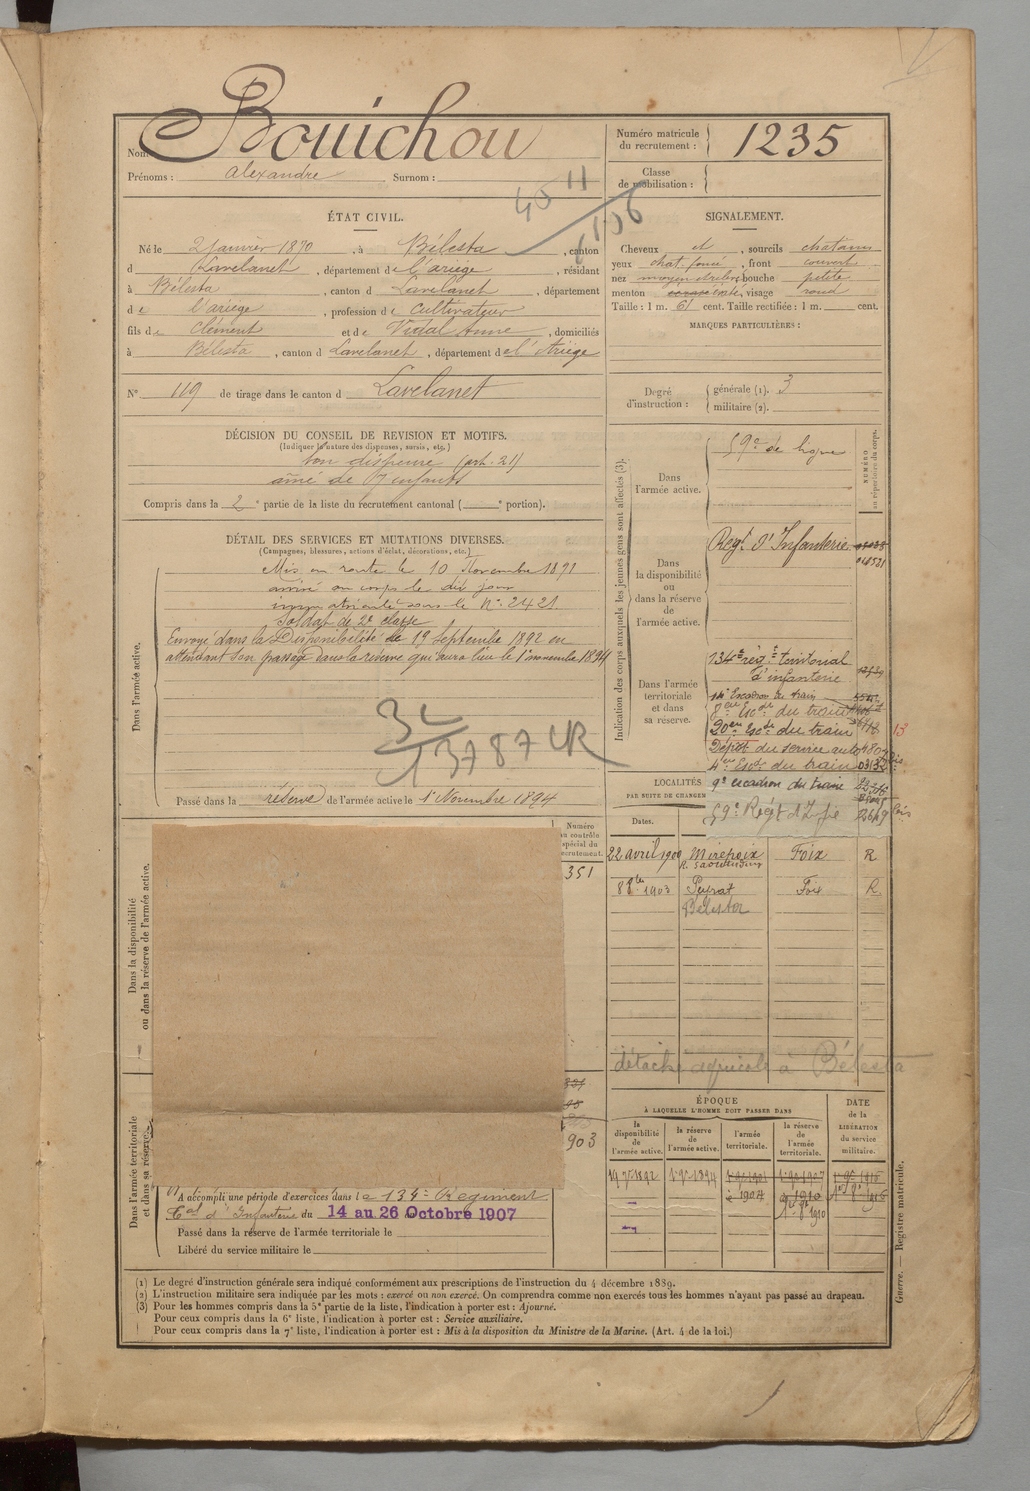 Nom Bouichou
Prénoms : alexandre Surnom :
Numéro matricule du recrutement : 1235
Classe de mobilisation :
ÉTAT CIVIL.
Né le 2 janvier 1870, à Bélesta, canton
d Lavelanet, département de l'ariège, résidant
à Bélesta, canton d Lavelanet, département
de l'ariège, profession de cultivateur
fils de Clément et de Vidal Anne, domiciliés
à Bélesta, canton d Lavelanet, département de l'Ariège
N° 119 de tirage dans le canton d Lavelanet
SIGNALEMENT.
Cheveux et, sourcils chatains
yeux chat. foncé, front couvert
nez moyen, bouche petite
menton, visage rond
Taille : 1 m. 61 cent. Taille rectifiée : 1 m. cent.
MARQUES PARTICULIÈRES :
Degré d'instruction : générale (1). 3
militaire (2).
DÉCISION DU CONSEIL DE REVISION ET MOTIFS.
(Indiquer la nature des dispenses, sursis, etc.)
bon dispensé (art. 21)
aîné de 7 enfants
Compris dans la 2e partie de la liste du recrutement cantonal ( e portion).
DÉTAIL DES SERVICES ET MUTATIONS DIVERSES.
(Campagnes, blessures, actions d'éclat, décorations, etc.)
Dans l'armée active.
Mis en route le 10 Novembre 1891
arrivé au corps le dit jour
immatriculé sous le N° 2421
Soldat de 2e classe
Envoyé dans la Disponibilité le 19 Septembre 1892 en
attendant son passage dans la réserve qui aura lieu le 1er novembre 1894
Passé dans la réserve de l'armée active le 1er Novembre 1894
Indication des corps auxquels les jeunes gens sont affectés (3).
NUMÉRO au répertoire du corps.
Dans l'armée active.
59e de ligne
Dans la disponibilité ou dans la réserve de l'armée active.
Regt d'Infanterie
Dans l'armée territoriale et dans sa réserve.
134e régt territorial
d'infanterie
Escadron du train
8eme Escon du train
20eme Escon du train
Dépôt du service auto
4eme Escon du train
9e escadron du train
59e Régt d'Infie
LOCALITÉS
PAR SUITE DE CHANGEMEN
Dates.
22 avril 1900 Mirepoix Foix R
1903 Peyrat Foix R
Bélesta
détaché agricole à Bélesta
Numéro au contrôle spécial du recrutement.
351
903
Dans la disponibilité ou dans la réserve de l'armée active.
Dans l'armée territoriale et dans sa réserve.
ÉPOQUE
À LAQUELLE L'HOMME DOIT PASSER DANS
la disponibilité de l'armée active.
la réserve de l'armée active.
l'armée territoriale.
la réserve de l'armée territoriale.
DATE de la LIBÉRATION du service militaire.
A accompli une période d'exercices dans le 134e Régiment
Tal d'Infanterie du 14 au 26 Octobre 1907
Passé dans la réserve de l'armée territoriale le
Libéré du service militaire le
(1) Le degré d'instruction générale sera indiqué conformément aux prescriptions de l'instruction du 4 décembre 1889.
(2) L'instruction militaire sera indiquée par les mots : exercé ou non exercé. On comprendra comme non exercés tous les hommes n'ayant pas passé au drapeau.
(3) Pour les hommes compris dans la 5e partie de la liste, l'indication à porter est : Ajourné.
Pour ceux compris dans la 6e liste, l'indication à porter est : Service auxiliaire.
Pour ceux compris dans la 7e liste, l'indication à porter est : Mis à la disposition du Ministre de la Marine. (Art. 4 de la loi.)
Guerre. — Registre matricule.